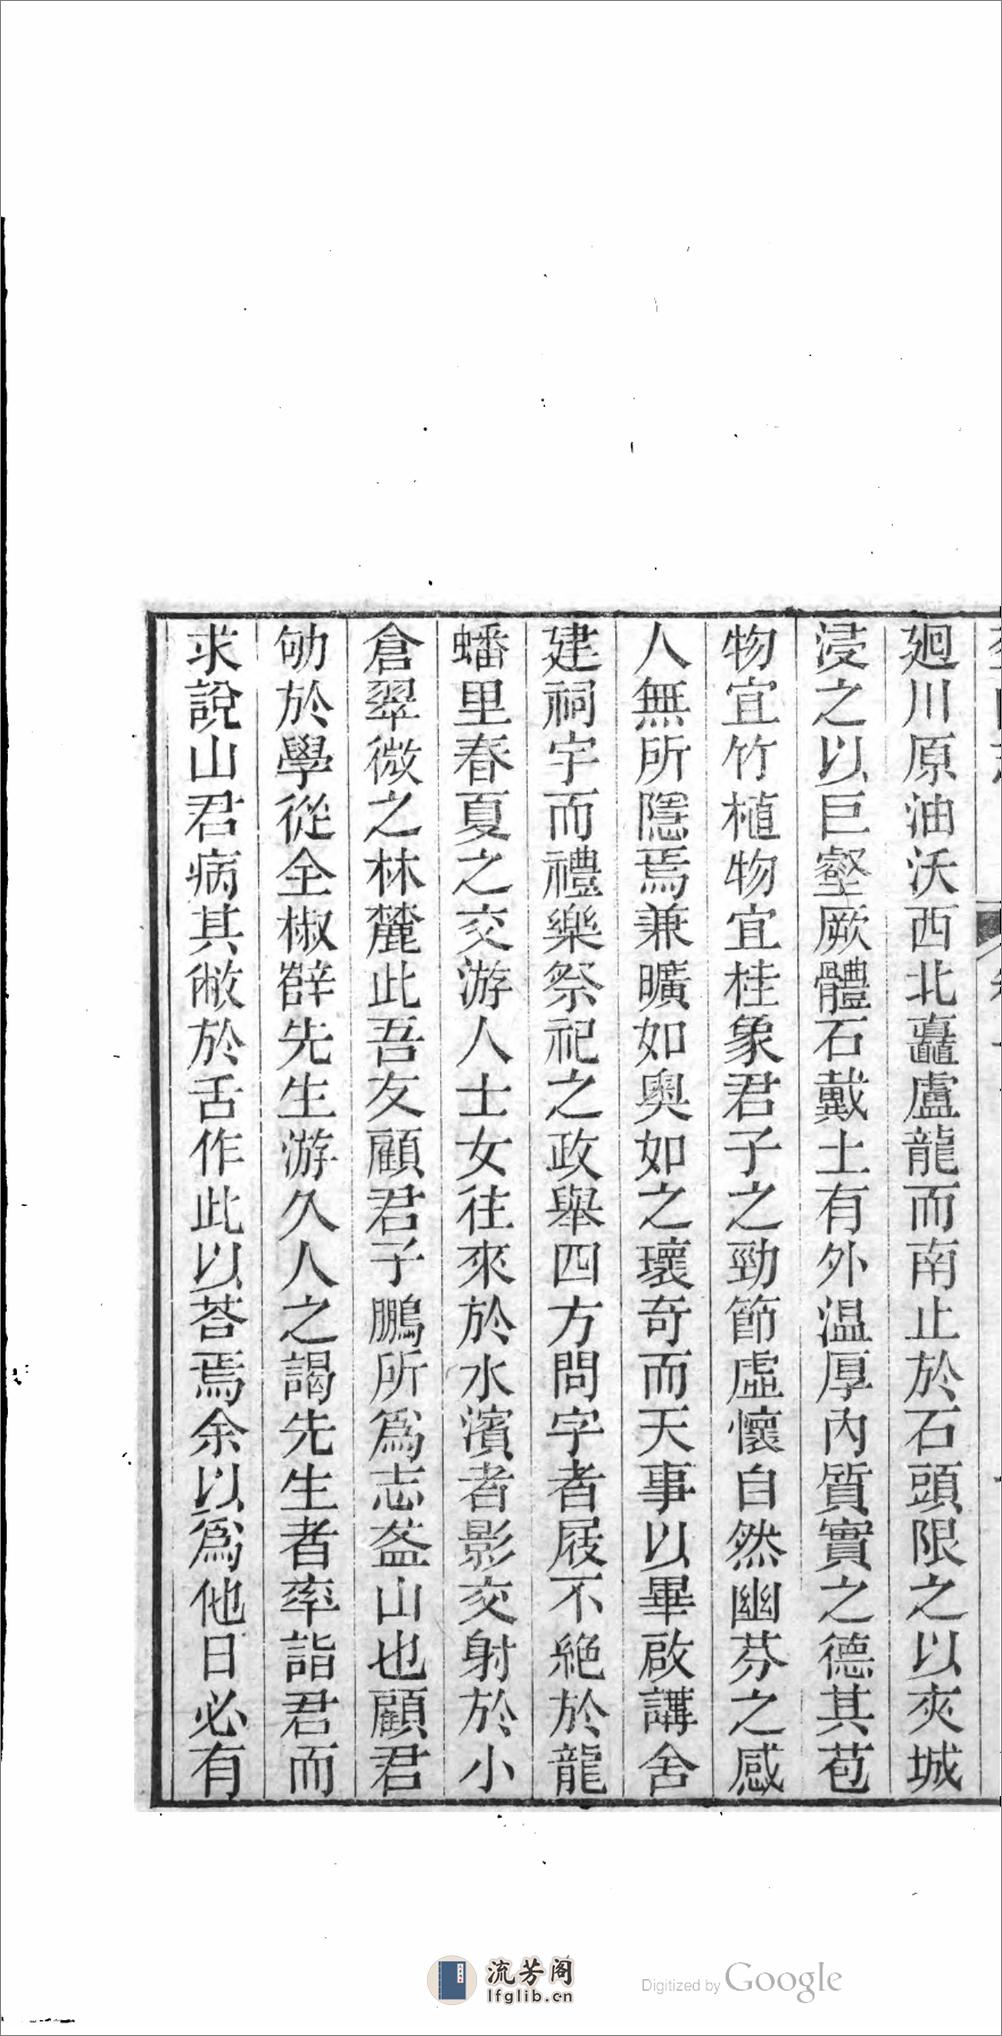 廻川原油沃西北矗盧龍而南止於石頭限之以夾城
浸之以巨壑厥體石戴土有外温厚內質實之德其苞
物宜竹植物宜桂象君子之勁節虛懷自然幽芬之感
人無所隱焉兼曠如奧如之瓌奇而天事以畢啟講舍
建祠宇而禮樂祭祀之政舉四方問字者屐不絶於龍
蟠里春夏之交游人士女往來於水濱者影交射於小
倉翠微之林麓此吾友顧君子鵬所爲志盋山也顧君
劬於學從全椒薛先生游久人之謁先生者率詣君而
求說山君病其敝於舌作此以荅焉余以爲他日必有
流芳阁
lfglib.cn
Digitized by Google